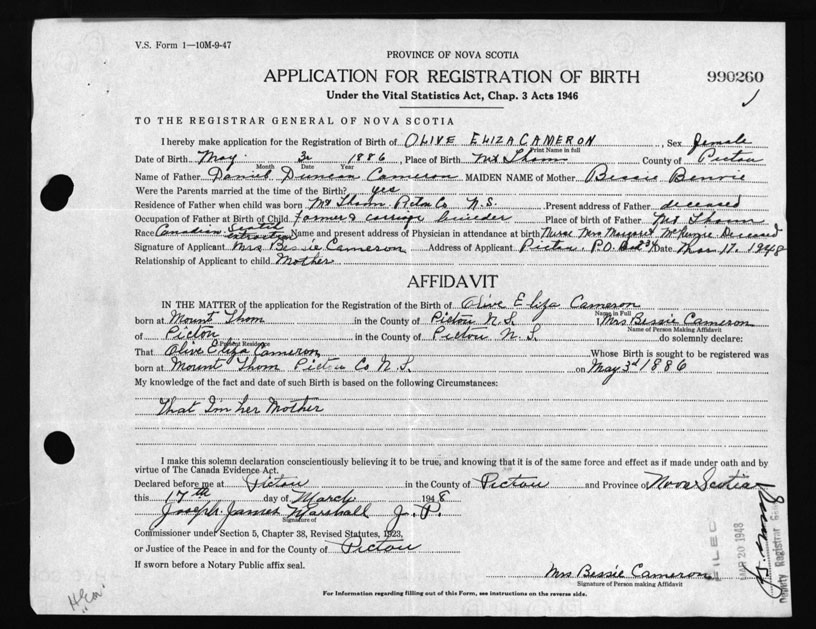 V.S. Form 1—10M-9-47
PROVINCE OF NOVA SCOTIA
APPLICATION FOR REGISTRATION OF BIRTH
990260
Under the Vital Statistics Act, Chap. 3 Acts 1946
TO THE REGISTRAR GENERAL OF NOVA SCOTIA
I hereby make application for the Registration of Birth of OLIVE ELIZA CAMERON, Sex female
Print Name in full
Date of Birth May 3rd 1886, Place of Birth Mt Thom County of Pictou
Month Date Year
Name of Father Daniel Duncan Cameron MAIDEN NAME of Mother Bessie Benvie
Were the Parents married at the time of the Birth? yes
Residence of Father when child was born Mt Thom Pictou Co N.S. Present address of Father deceased
Occupation of Father at Birth of Child farmer & carriage builder Place of birth of Father Mt Thom
Race Canadian Scotch extraction Name and present address of Physician in attendance at birth Nurse Mrs Margaret McKenzie Deceased
Signature of Applicant Mrs Bessie Cameron Address of Applicant Pictou P.O. Date Mar 17, 1948
Relationship of Applicant to child Mother
AFFIDAVIT
IN THE MATTER of the application for the Registration of the Birth of Olive Eliza Cameron
Name in Full
born at Mount Thom in the County of Pictou N.S. I Mrs Bessie Cameron
Name of Person Making Affidavit
of Pictou in the County of Pictou N.S. do solemnly declare:
Present Residence
That Olive Eliza Cameron Whose Birth is sought to be registered was
born at Mount Thom Pictou Co N.S. on May 3rd 1886
My knowledge of the fact and date of such Birth is based on the following Circumstances:
That I'm her Mother
I make this solemn declaration conscientiously believing it to be true, and knowing that it is of the same force and effect as if made under oath and by
virtue of The Canada Evidence Act.
Declared before me at Pictou in the County of Pictou and Province of Nova Scotia
this 17th day of March 1948
Joseph James Marshall J.P.
Signature of
Commissioner under Section 5, Chapter 38, Revised Statutes, 1923,
or Justice of the Peace in and for the County of Pictou
If sworn before a Notary Public affix seal.
Mrs Bessie Cameron
Signature of Person making Affidavit
For Information regarding filling out of this Form, see instructions on the reverse side.
FILED
MAR 20 1948
Deputy Registrar